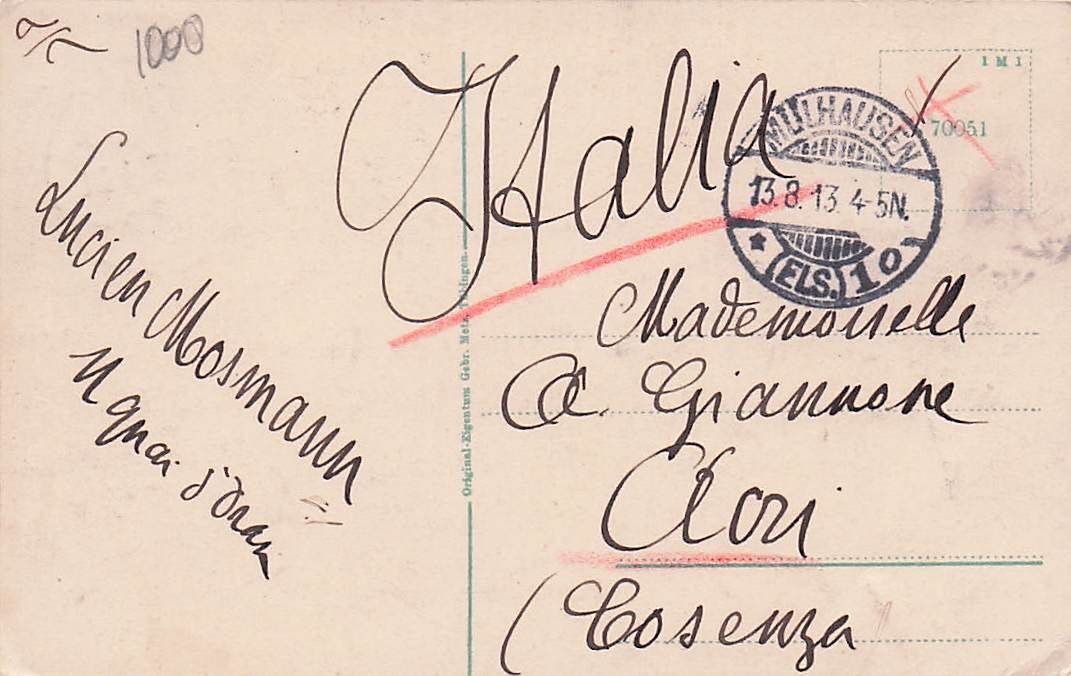 1000
Italia
1 M 1
70051
MÜLHAUSEN
13.8.13.4-5N.
(ELS.) 1 o
Lucien Mosmann
11 quai d'Oran
Original-Eigentum Gebr. Metz, Tübingen.
Mademoiselle
A. Giannone
Acri
(Cosenza